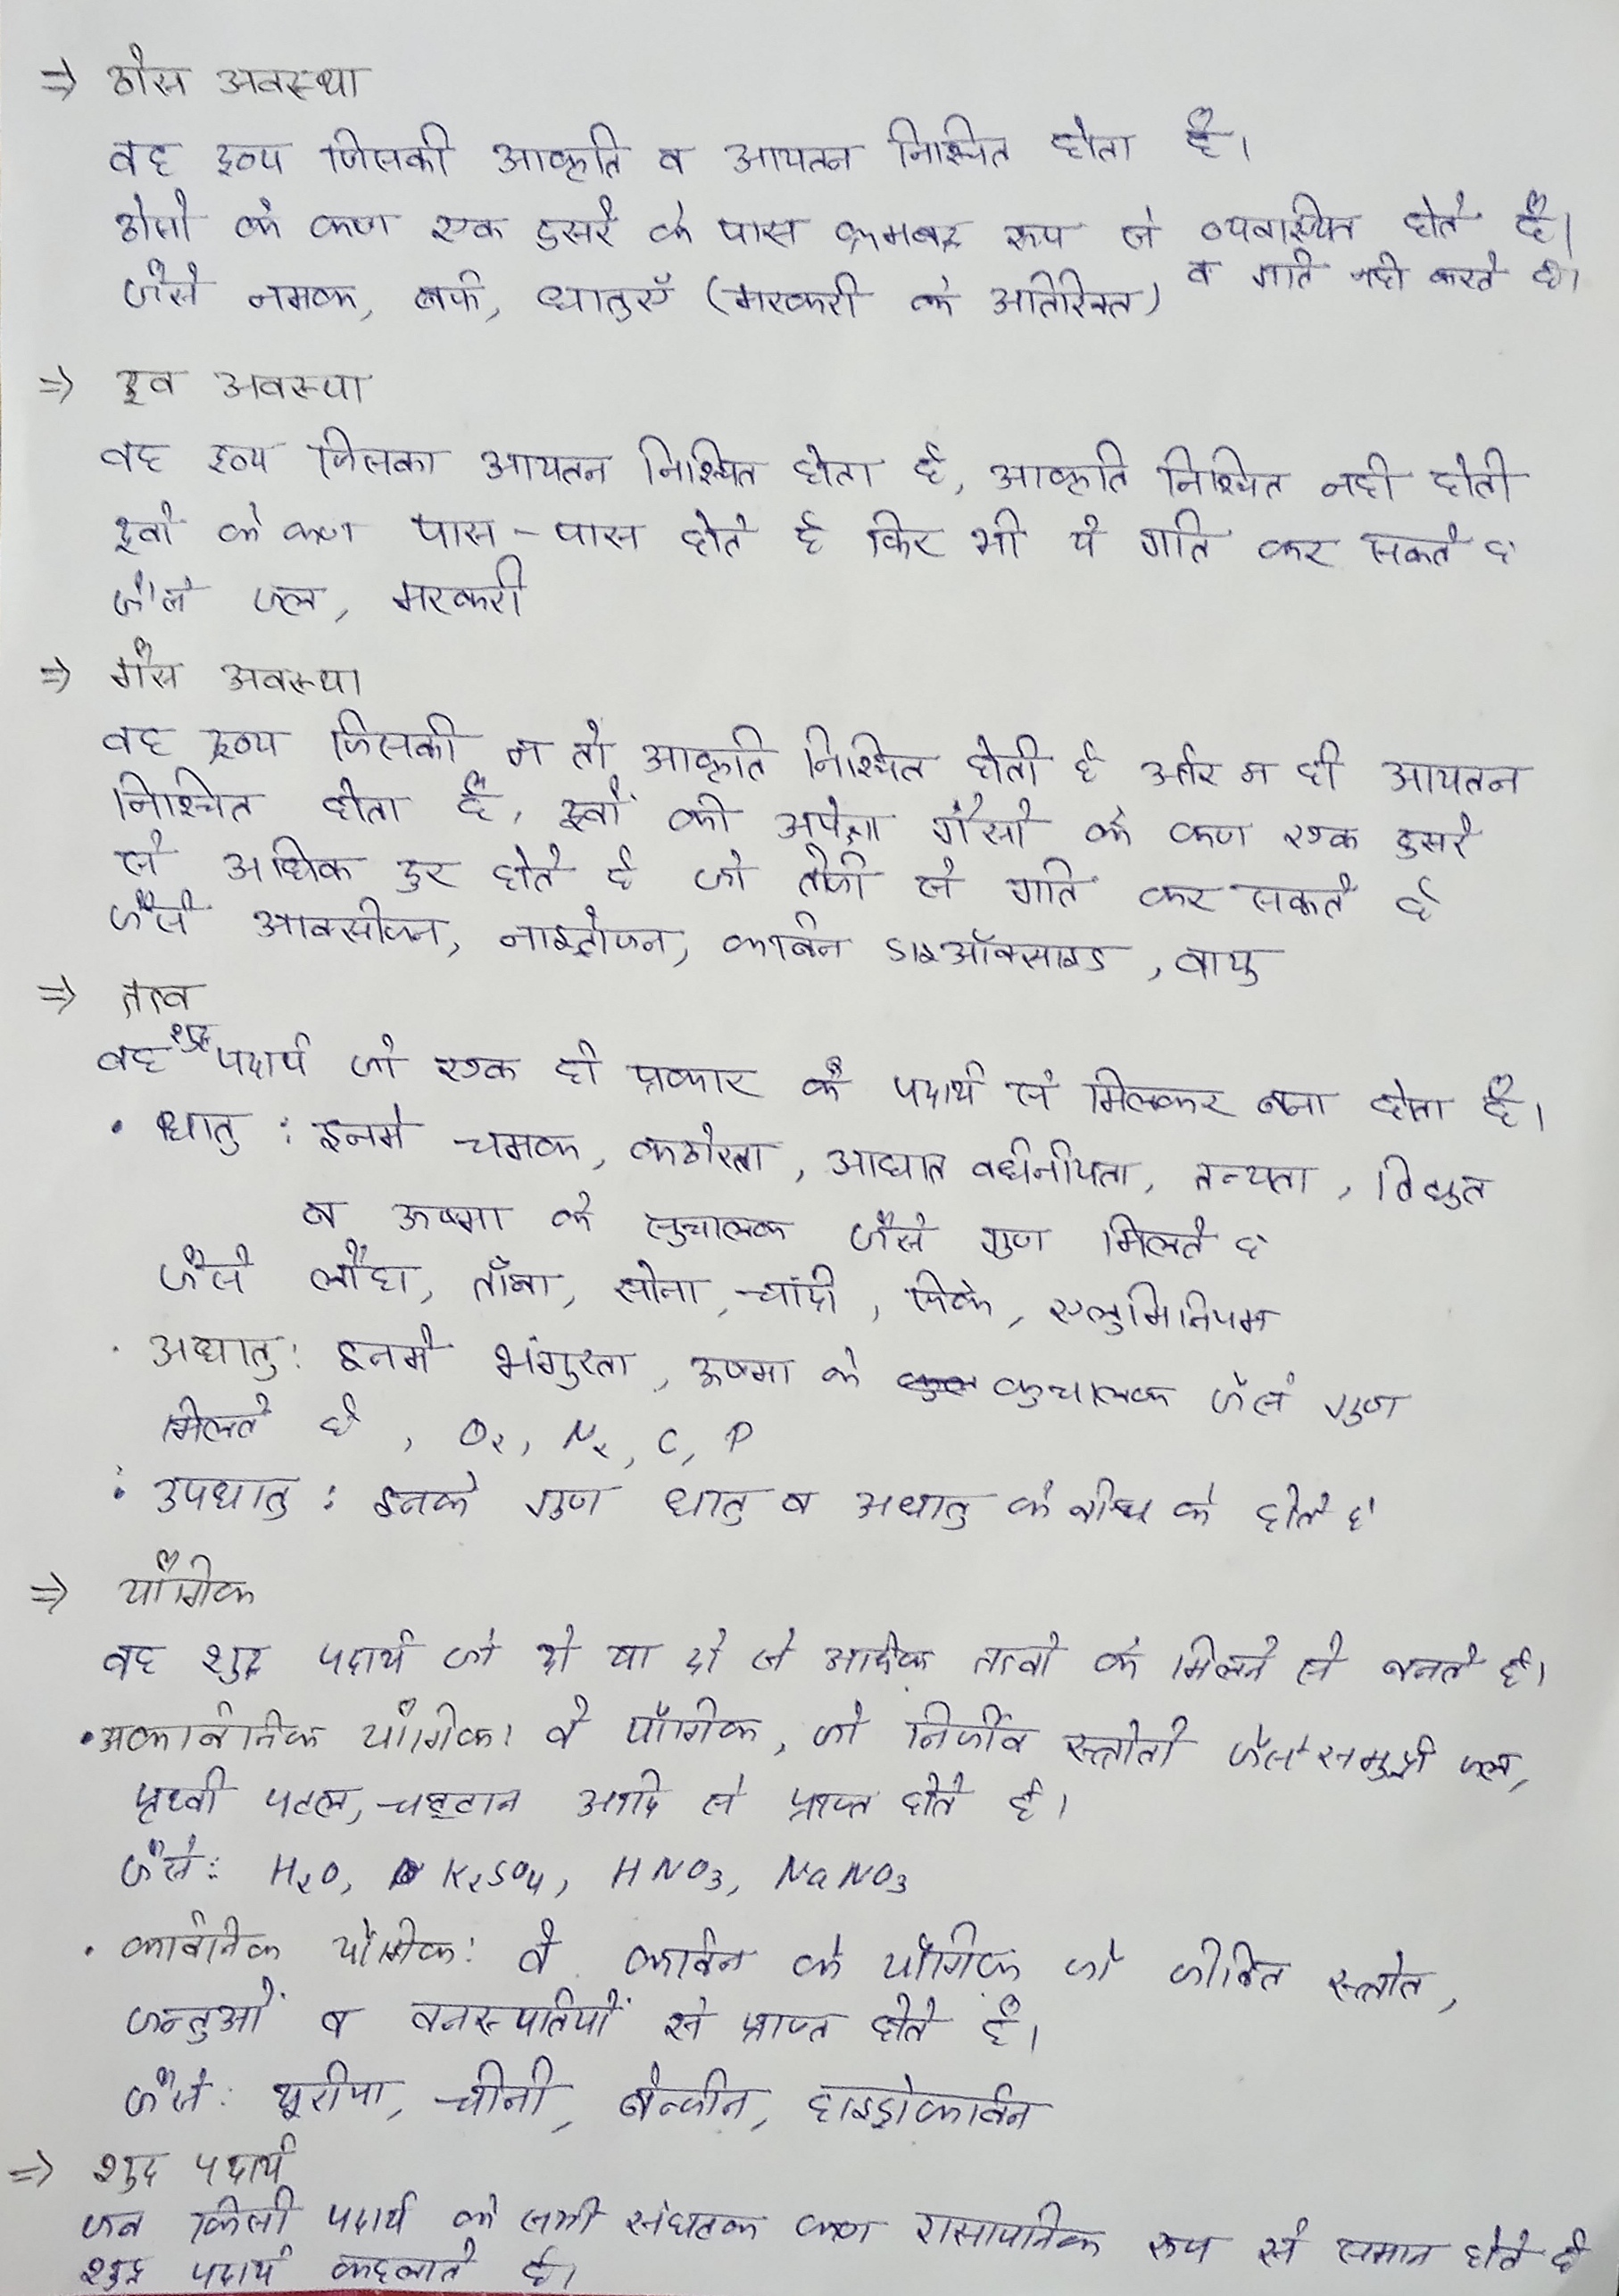 ⇒ ठोस अवस्था
वह द्रव्य जिसकी आकृति व आयतन निश्चित होता है।
ठोसो के कण एक दुसरे के पास क्रमबद्ध रूप से व्यवास्थित होते है।
व गति नही करते है।
जैसे नमक, बर्फ, धातुएँ (मरकरी के अतिरिक्त)
⇒ द्रव अवस्था
वह द्रव्य जिसका आयतन निश्चित होता है, आकृति निश्चित नही होती
द्रवो के कण पास-पास होते है फिर भी ये गति कर सकते है
जैसे जल, मरकरी
⇒ गैस अवस्था
वह द्रव्य जिसकी न तो आकृति निश्चित होती है और न ही आयतन
निश्चित होता है, द्रवों की अपेक्षा गैसो के कण एक दुसरे
से अधिक दुर होते है जो तेजी से गति कर सकते है
जैसे आक्सीजन, नाइट्रोजन, कार्बन डाइऑक्साइड, वायु
⇒ तत्व
वह शुद्ध पदार्थ जो एक ही प्रकार के पदार्थ से मिलकर बना होता है।
• धातु : इनमे चमक, कठोरता, आघात वर्धनीयता, तन्यता, विद्युत
व ऊष्मा के सुचालक जैसे गुण मिलते है
जैसे लौह, ताँबा, सोना, चांदी, जिंक, एलुमिनियम
• अधातु: इनमे भंगुरता, ऊष्मा के कुचालक जैसे गुण
मिलते है, O₂, N₂, C, P
• उपधातु : इनके गुण धातु व अधातु के बीच के होते है
⇒ यौगिक
वह शुद्ध पदार्थ जो दो या दो से अधिक तत्वो के मिलने से बनते है।
• अकार्बनिक यौगिक: वे यौगिक, जो निर्जीव स्त्रोतो जैसे समुद्री जल,
पृथ्वी पटल, चट्टान आदि से प्राप्त होते है।
जैसे: H₂O, K₂SO₄, HNO₃, NaNO₃
• कार्बनिक यौगिक: वे कार्बन के यौगिक जो जीवित स्त्रोत,
जन्तुओं व वनस्पतियों से प्राप्त होते है।
जैसे: यूरीया, चीनी, बेन्जीन, हाइड्रोकार्बन
⇒ शुद्ध पदार्थ
जब किसी पदार्थ के सभी संघटक कण रासायनिक रूप से समान होते है
शुद्ध पदार्थ कहलाते है।